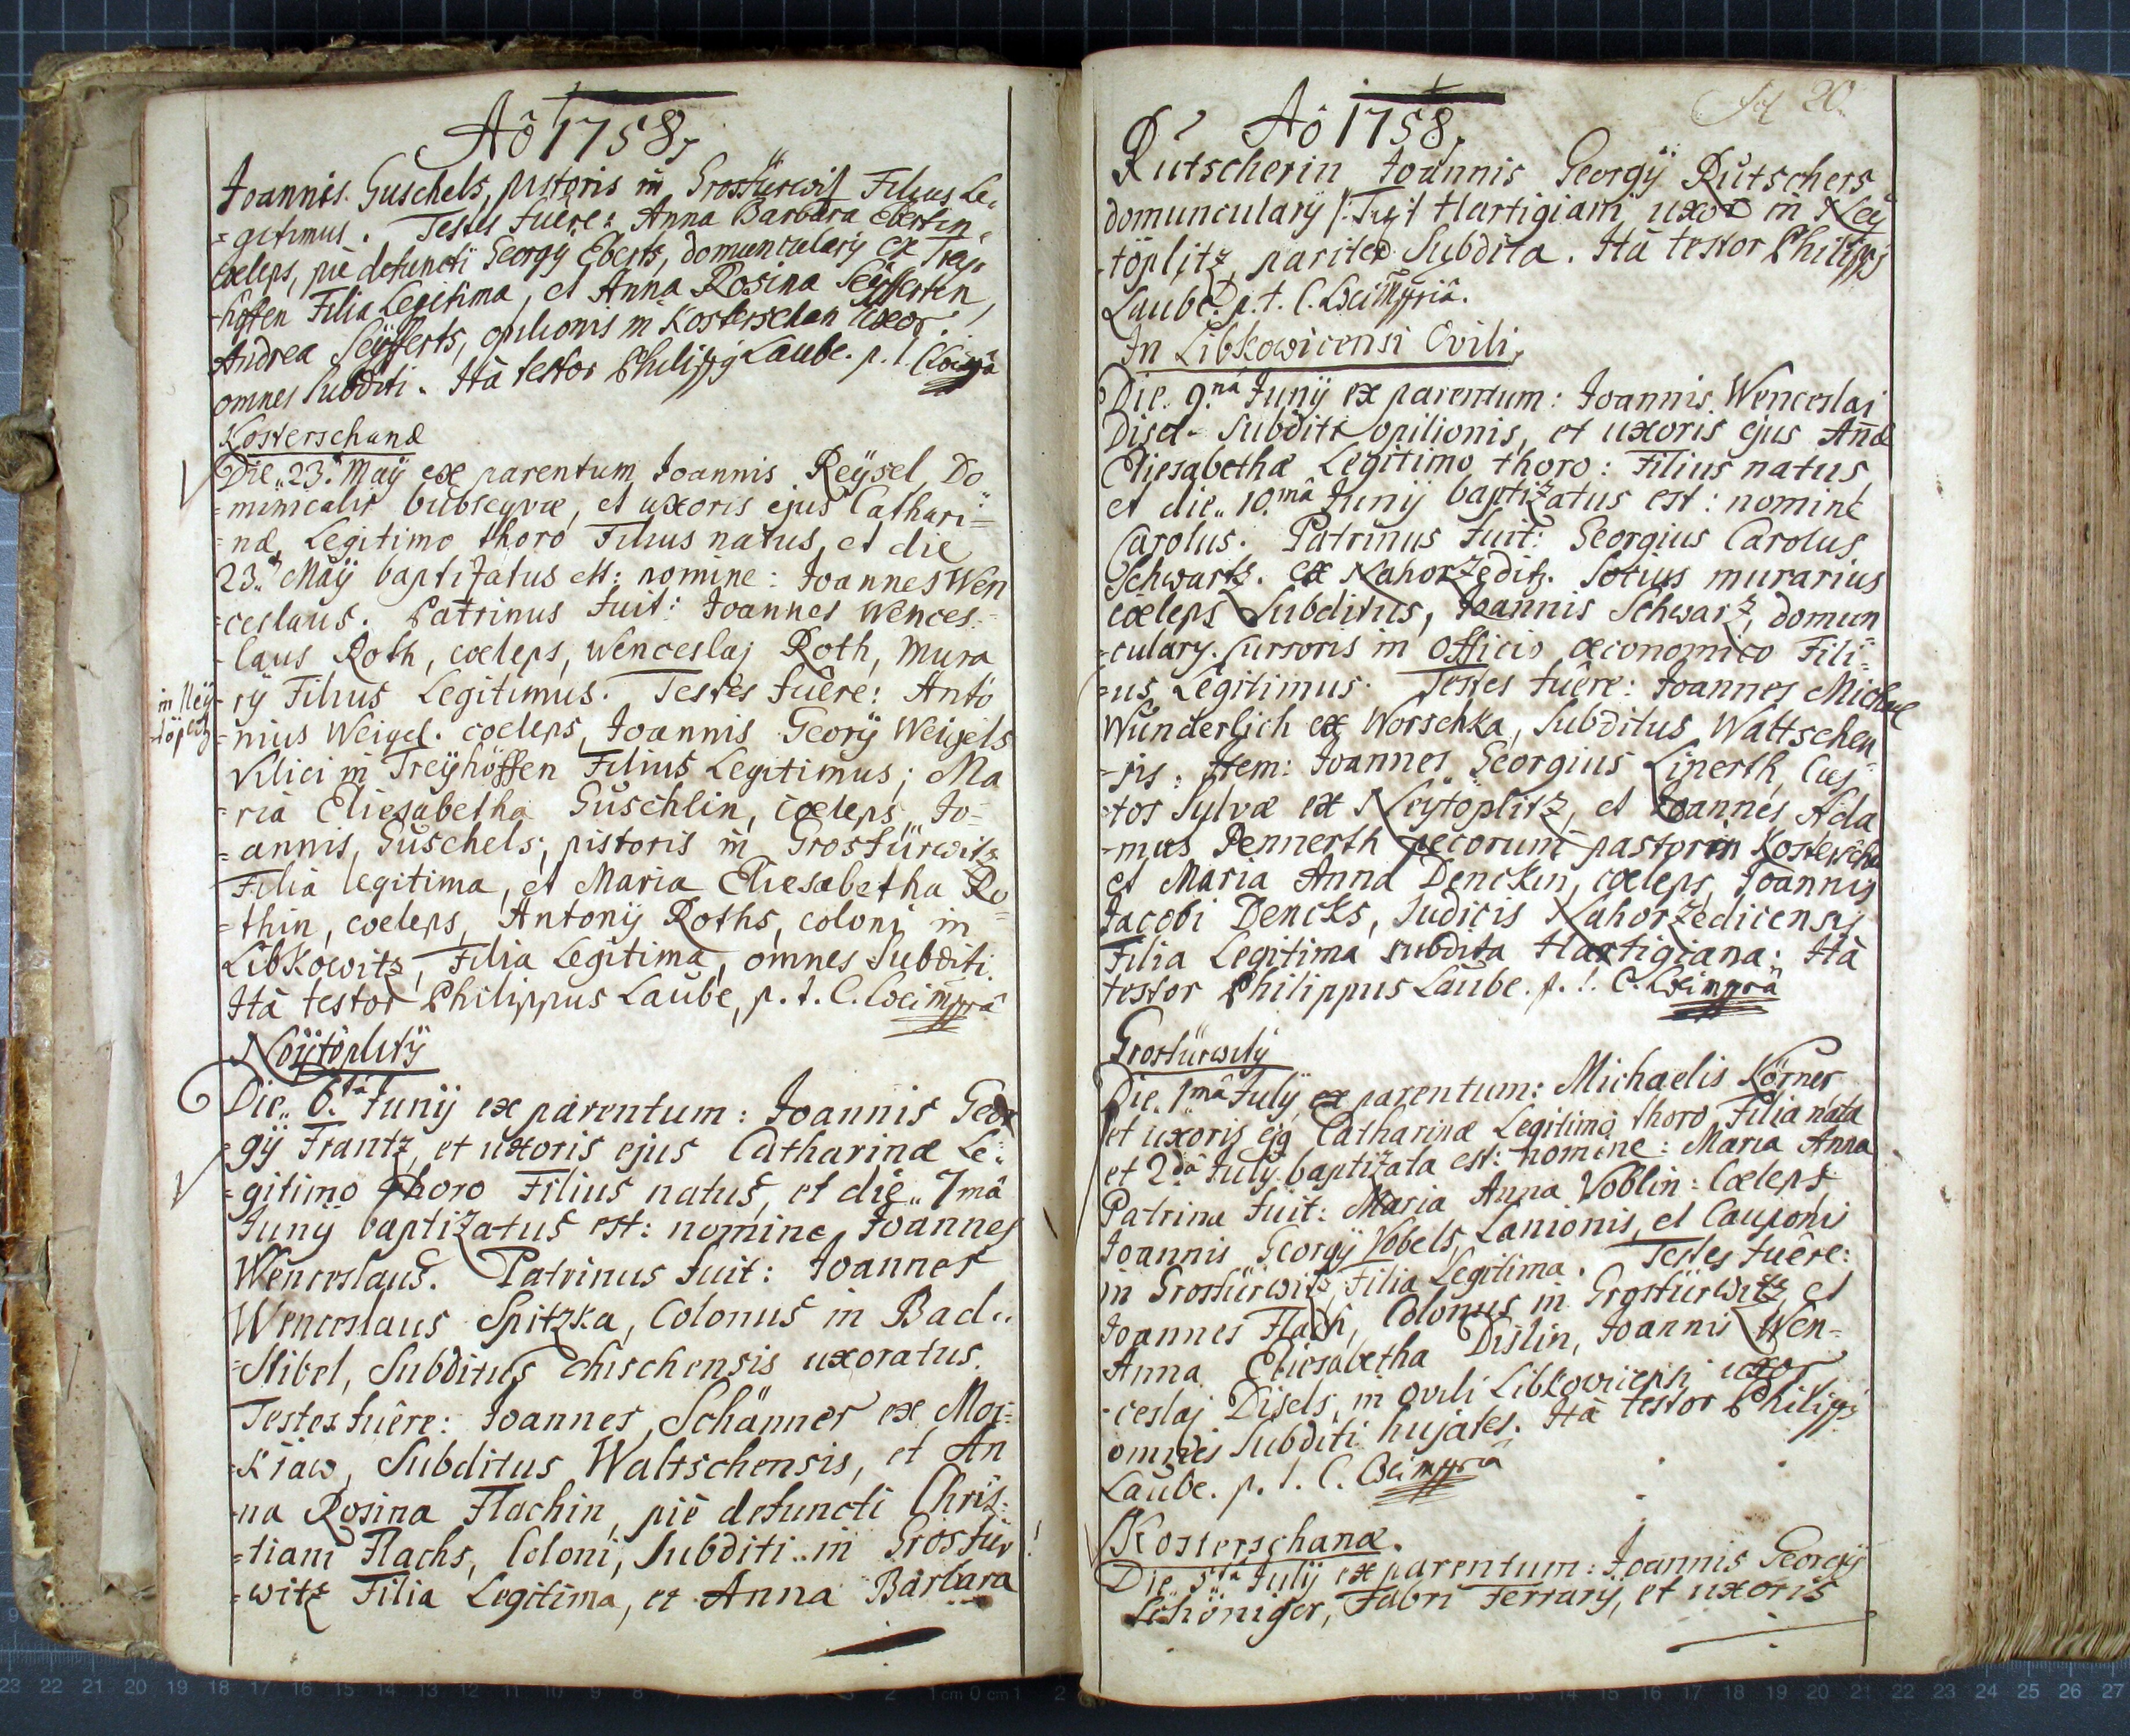 Aô 1758,
Joannis Guschels, pistoris in Grostürwitz Filius Le-
=gitimus. Testes fuêre: Anna Barbara Ebertin
coeleps, piè defuncti Georgy Eberts, domuncularÿ ex Treÿ-
-höffen Filia Legitima, et Anna Rosina Seÿfferten,
Andrea Seÿfferts, opilionis in Kosterschan uxor.
omnes Subditi. Ità testor Philippg Laube. p. t.
Kosterschanæ
Die 23. Maÿ ex parentum Joannis Reÿsel, Do
=minicalis bubseqvæ, et uxoris ejus Cathari=
=næ, Legitimo thoro Filius natus, et die
23. Maÿ baptizatus est: nomine: Joannes Wen
=ceslaus. Patrinus fuit: Joannes Wences=
-laus Roth, coeleps, Wenceslaj Roth, Mura
-rÿ Filius Legitimus. Testes fuêre: Anto
in Neÿ-
-töplitz
=nius Weigel. coeleps, Joannis Georÿ Weigels
Vilici in Treÿhöffen Filius Legitimus; Ma
=ria Eliesabetha Guschlin, cæleps, Jo-
=annis, Guschels, pistoris in Grostürwitz
Filia legitima, et Maria Eliesabetha Ro=
=thin, coeleps, Antonÿ Roths, colonj in
Libkowitz, Filia Legitima, omnes Subditi.
Ità testor Philippus Laube, p. t. C. Loci mppriâ
Neÿtöplitz
Die 6.ta Junÿ ex parentum: Joannis Geor
=gÿ Frantz, et uxoris ejus Catharinæ Le=
=gitimo thoro Filius natus, et die 7mâ
Junÿ baptizatus est: nomine, Joannes
Wenceslaus. Patrinus fuit: Joannes
Wenceslaus Spitzka, Colonus in Bad-
=stibel, Subditus Chischensis uxoratus.
Testes fuêre: Joannes Schänner ex Mor=
=kiaw, Subditus Waltschensis, et An
-na Rosina Flachin, piè defuncti Chris=
=tiani Flachs, Coloni, Subditi in Grostür
=witz Filia Legitima, et Anna Barbara
Fol 20.
Aô 1758,
Rutscherin Joannis Georgÿ Rutschers
domuncularÿ Hartigiani uxor in Neÿ
-töplitz, pariter Subdita. Ità testor Philippg
Laube. p. t. C. Loci mppriâ.
In Libkowicensi Ovili,
Die 9.nâ Junÿ ex parentum: Joannis Wenceslaj
Disel Subditi opilionis, et uxoris ejus Añæ
Eliesabethæ Legitimo thoro: Filius natus,
et die 10.mâ Junÿ baptizatus est: nomine
Carolus. Patrinus fuit: Georgius Carolus
Schwartz. ex Nahorzeditz. Sotius murarius
cœleps Subditus, Joannis Schwarz, domun
=culary. Cursoris in Officio œconomico Fili=
=us Legitimus. Testes fuêre: Joannes Michael
Wunderlich ex Worschka, Subditus Waltschen
=sis. Item: Joannes Georgius Linerth, Cus=
-tos Sylvæ ex Neÿtöplitz, et Joannes Ada
-mus Pennerth pecorum pastor in Kosterscha
et Maria Anna Denckin, cœleps, Joannis
Jacobi Dencks, Judicis Nahorzedicensis
Filia Legitima subdita Hartigiana: Ità
testor Philippus Laube. p. t. C. Loci mppriâ
Grostürwitz
Die 1mâ Julÿ ex parentum: Michaelis Körner
et uxoris ejg Catharinæ Legitimo thoro Filia nata
et 2dâ Julÿ baptizata est: nomine: Maria Anna
Patrina fuit: Maria Anna Voblin: Cœleps
Joannis Georgÿ Vobels Lanionis, et Cauponis
in Grostürwitz, Filia Legitima. Testes fuêre:
Joannes Flach, Colonus in Grostürwitz, et
Anna Eliesabetha Dislin, Joannis Wen-
-ceslaj Disels, in ovili Libkowicensi uxor
omnes Subditi hujates. Ità testor Philippg
Laube. p. t. C. Loci mppriâ
Kosterschanæ.
Die 5.tâ Julÿ ex parentum: Joannis Georgÿ
Schöniger, Fabri Ferrarÿ, et uxoris